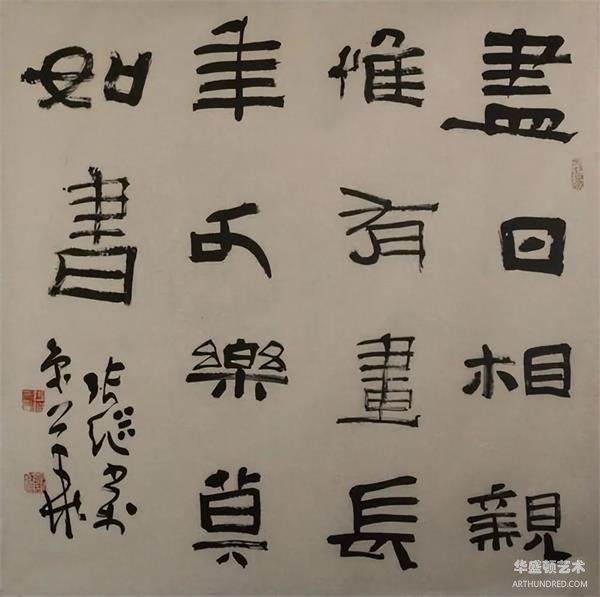 盡日相親
惟有畫長
年可樂莫
如書
华盛顿艺术
ARTHUNDRED.COM